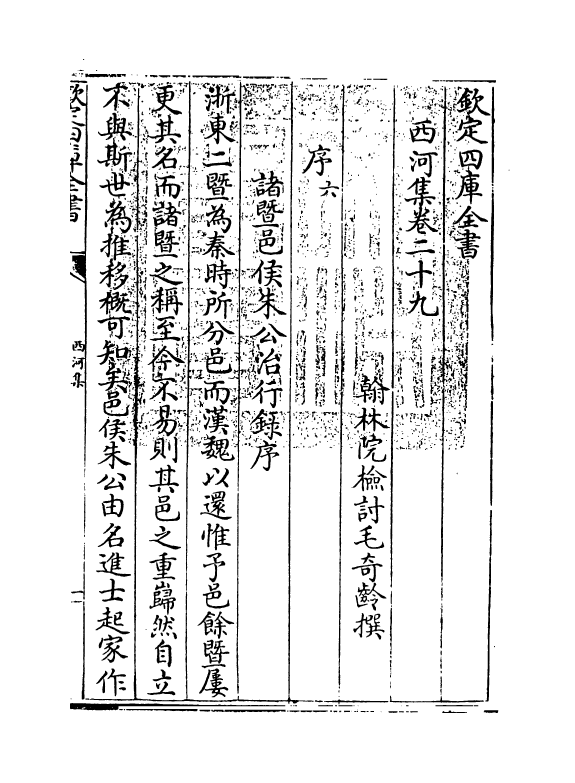 欽定四庫全書
西河集卷二十九
翰林院檢討毛奇齡撰
序六
諸暨邑侯朱公治行録序
浙東二暨為秦時所分邑而漢魏以還惟予邑餘暨屢
更其名而諸暨之稱至今不易則其邑之重巋然自立
不與斯世為推移槪可知矣邑侯朱公由名進士起家作
欽定四庫全書
西河集
一